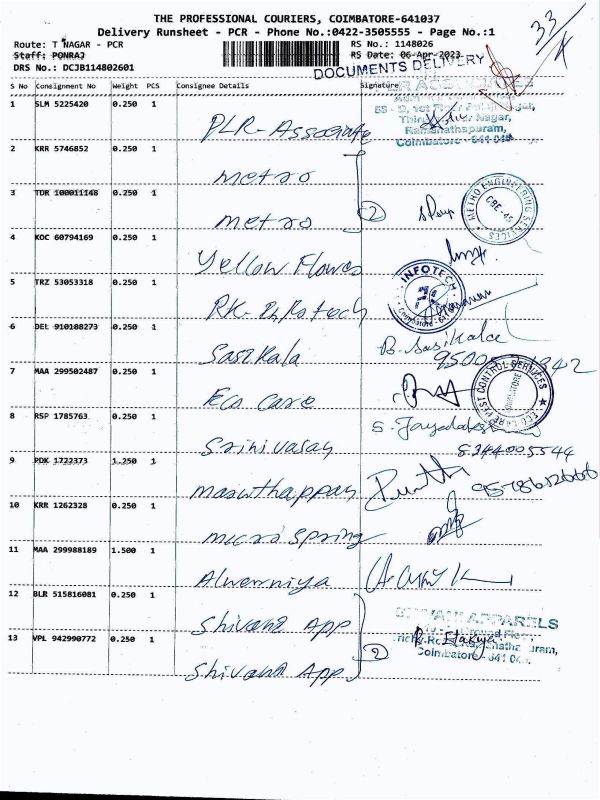 THE PROFESSIONAL COURIERS, COIMBATORE-641037
Delivery Runsheet - PCR - Phone No.:0422-3505555 - Page No.:1
Route: T NAGAR - PCR
RS No.: 1148026
Staff: PONRAJ
RS Date: 06-Apr-2023
DRS No.: DCJB114802601
DOCUMENTS DELIVERY
33
S No Consignment No Weight PCS Consignee Details Signature
1 SLM 5225420 0.250 1
PLR-Associate
Ramanathapuram,
Coimbatore - 641 045.
2 KRR 5746852 0.250 1
metro
3 TDR 100011148 0.250 1
metro
2
METRO ENGINEERING SERVICES
CBE-45
4 KOC 60794169 0.250 1
Yellow Flower
5 TRZ 53053318 0.250 1
INFOTECH
6 DEL 910188273 0.250 1
Sasikala
B. Sasikala
7 MAA 299502487 0.250 1
Eco care
ECO CARE PEST CONTROL SERVICES
8 RSP 1785763 0.250 1
Srinivasan
8344005544
9 PDK 1722373 1.250 1
10 KRR 1262328 0.250 1
micro spring
11 MAA 299988189 1.500 1
12 BLR 515816081 0.250 1
Shivani App
SHIVANI APPARELS
13 VPL 942990772 0.250 1
Shivani App
2
Coimbatore - 641 045.